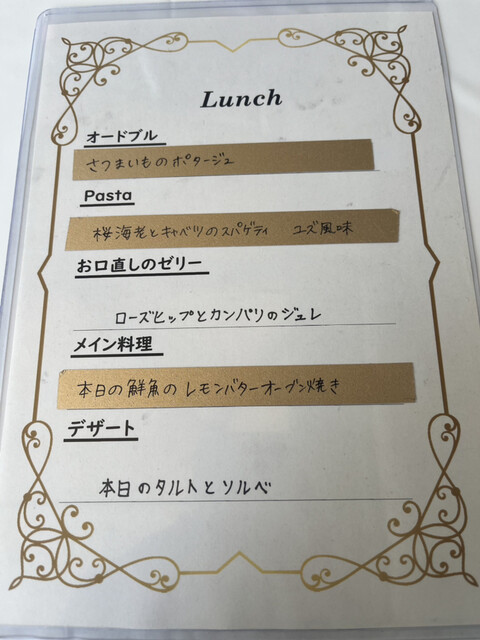 Lunch
オードブル
さつまいものポタージュ
Pasta
桜海老とキャベツのスパゲティ ユズ風味
お口直しのゼリー
ローズヒップとカンパリのジュレ
メイン料理
本日の鮮魚のレモンバターオーブン焼き
デザート
本日のタルトとソルベ